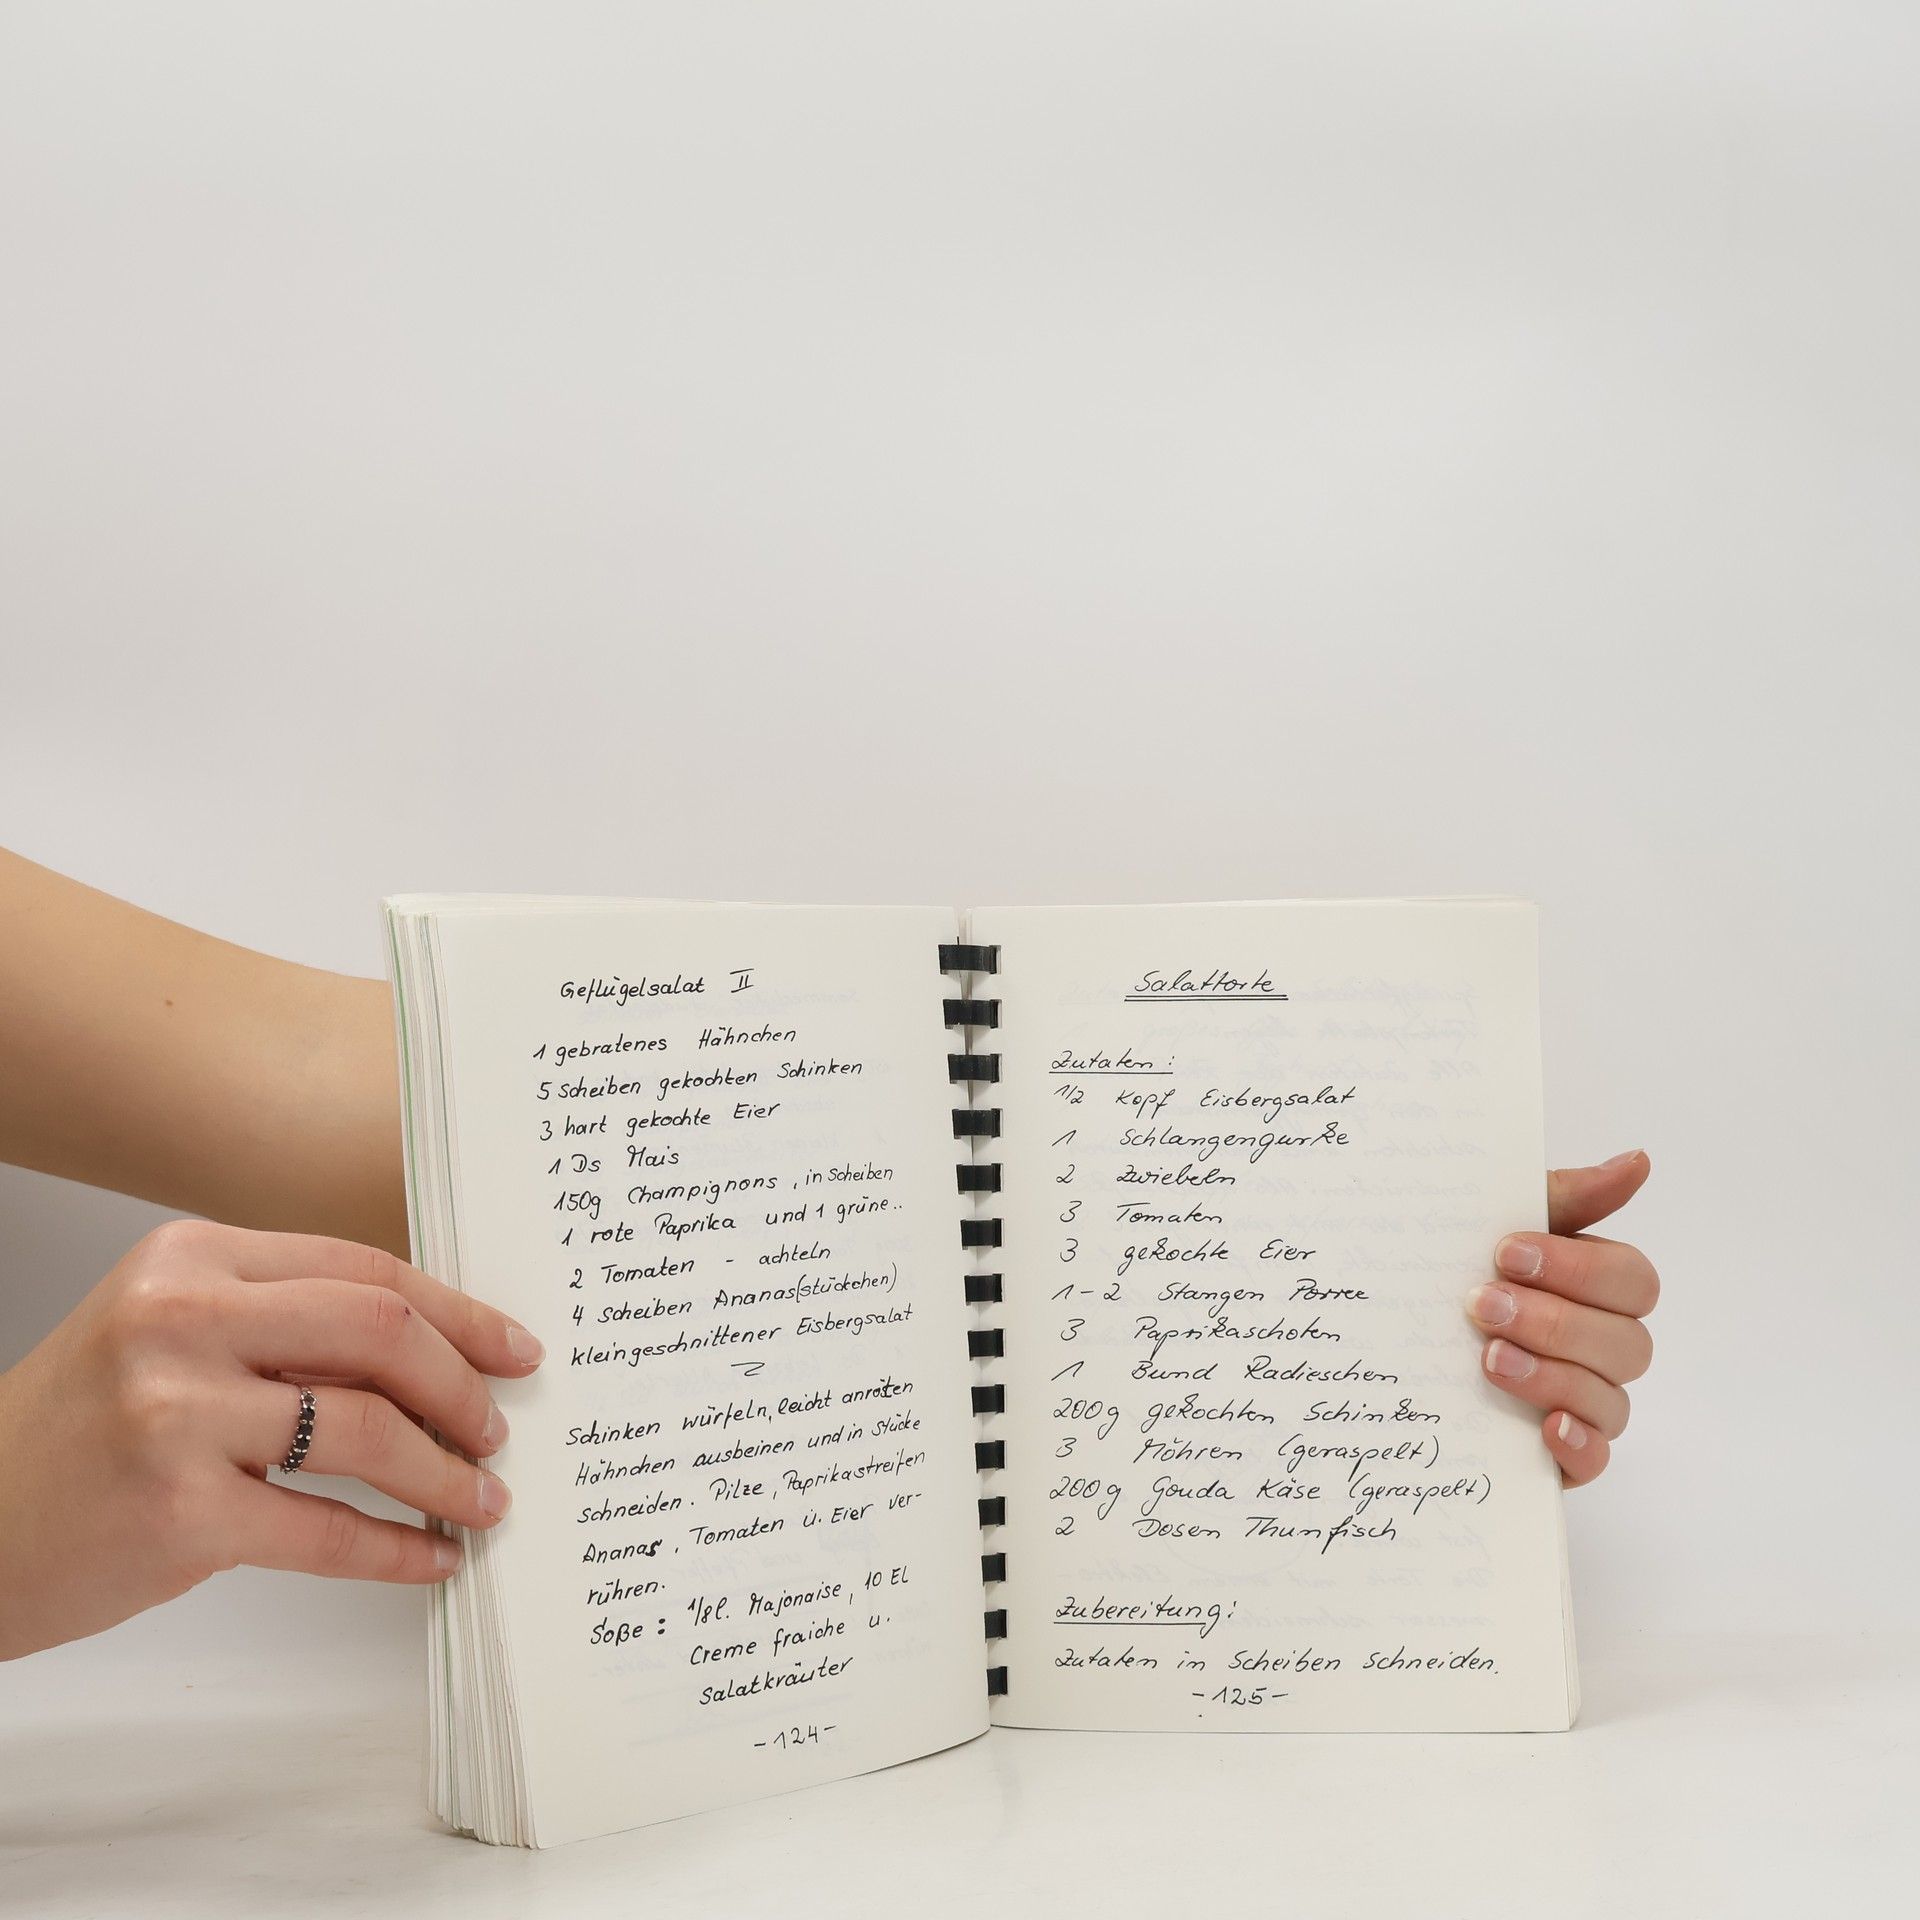 Geflügelsalat II
1 gebratenes Hähnchen
5 Scheiben gekochten Schinken
3 hart gekochte Eier
1 Ds Mais
150g Champignons, in Scheiben
1 rote Paprika und 1 grüne..
2 Tomaten - achteln
4 Scheiben Ananas(stückchen)
kleingeschnittener Eisbergsalat
Schinken würfeln, leicht anrösten
Hähnchen ausbeinen und in Stücke
schneiden. Pilze, Paprikastreifen
Ananas, Tomaten u. Eier ver-
rühren.
Soße: 1/8l. Majonaise, 10 El
Creme fraiche u.
Salatkräuter
-124-
Salattorte
Zutaten:
1/2 Kopf Eisbergsalat
1 Schlangengurke
2 Zwiebeln
3 Tomaten
3 gekochte Eier
1-2 Stangen Porree
3 Paprikaschoten
1 Bund Radieschen
200g gekochten Schinken
3 Möhren (geraspelt)
200g Gouda Käse (geraspelt)
2 Dosen Thunfisch
Zubereitung:
Zutaten in Scheiben schneiden.
-125-